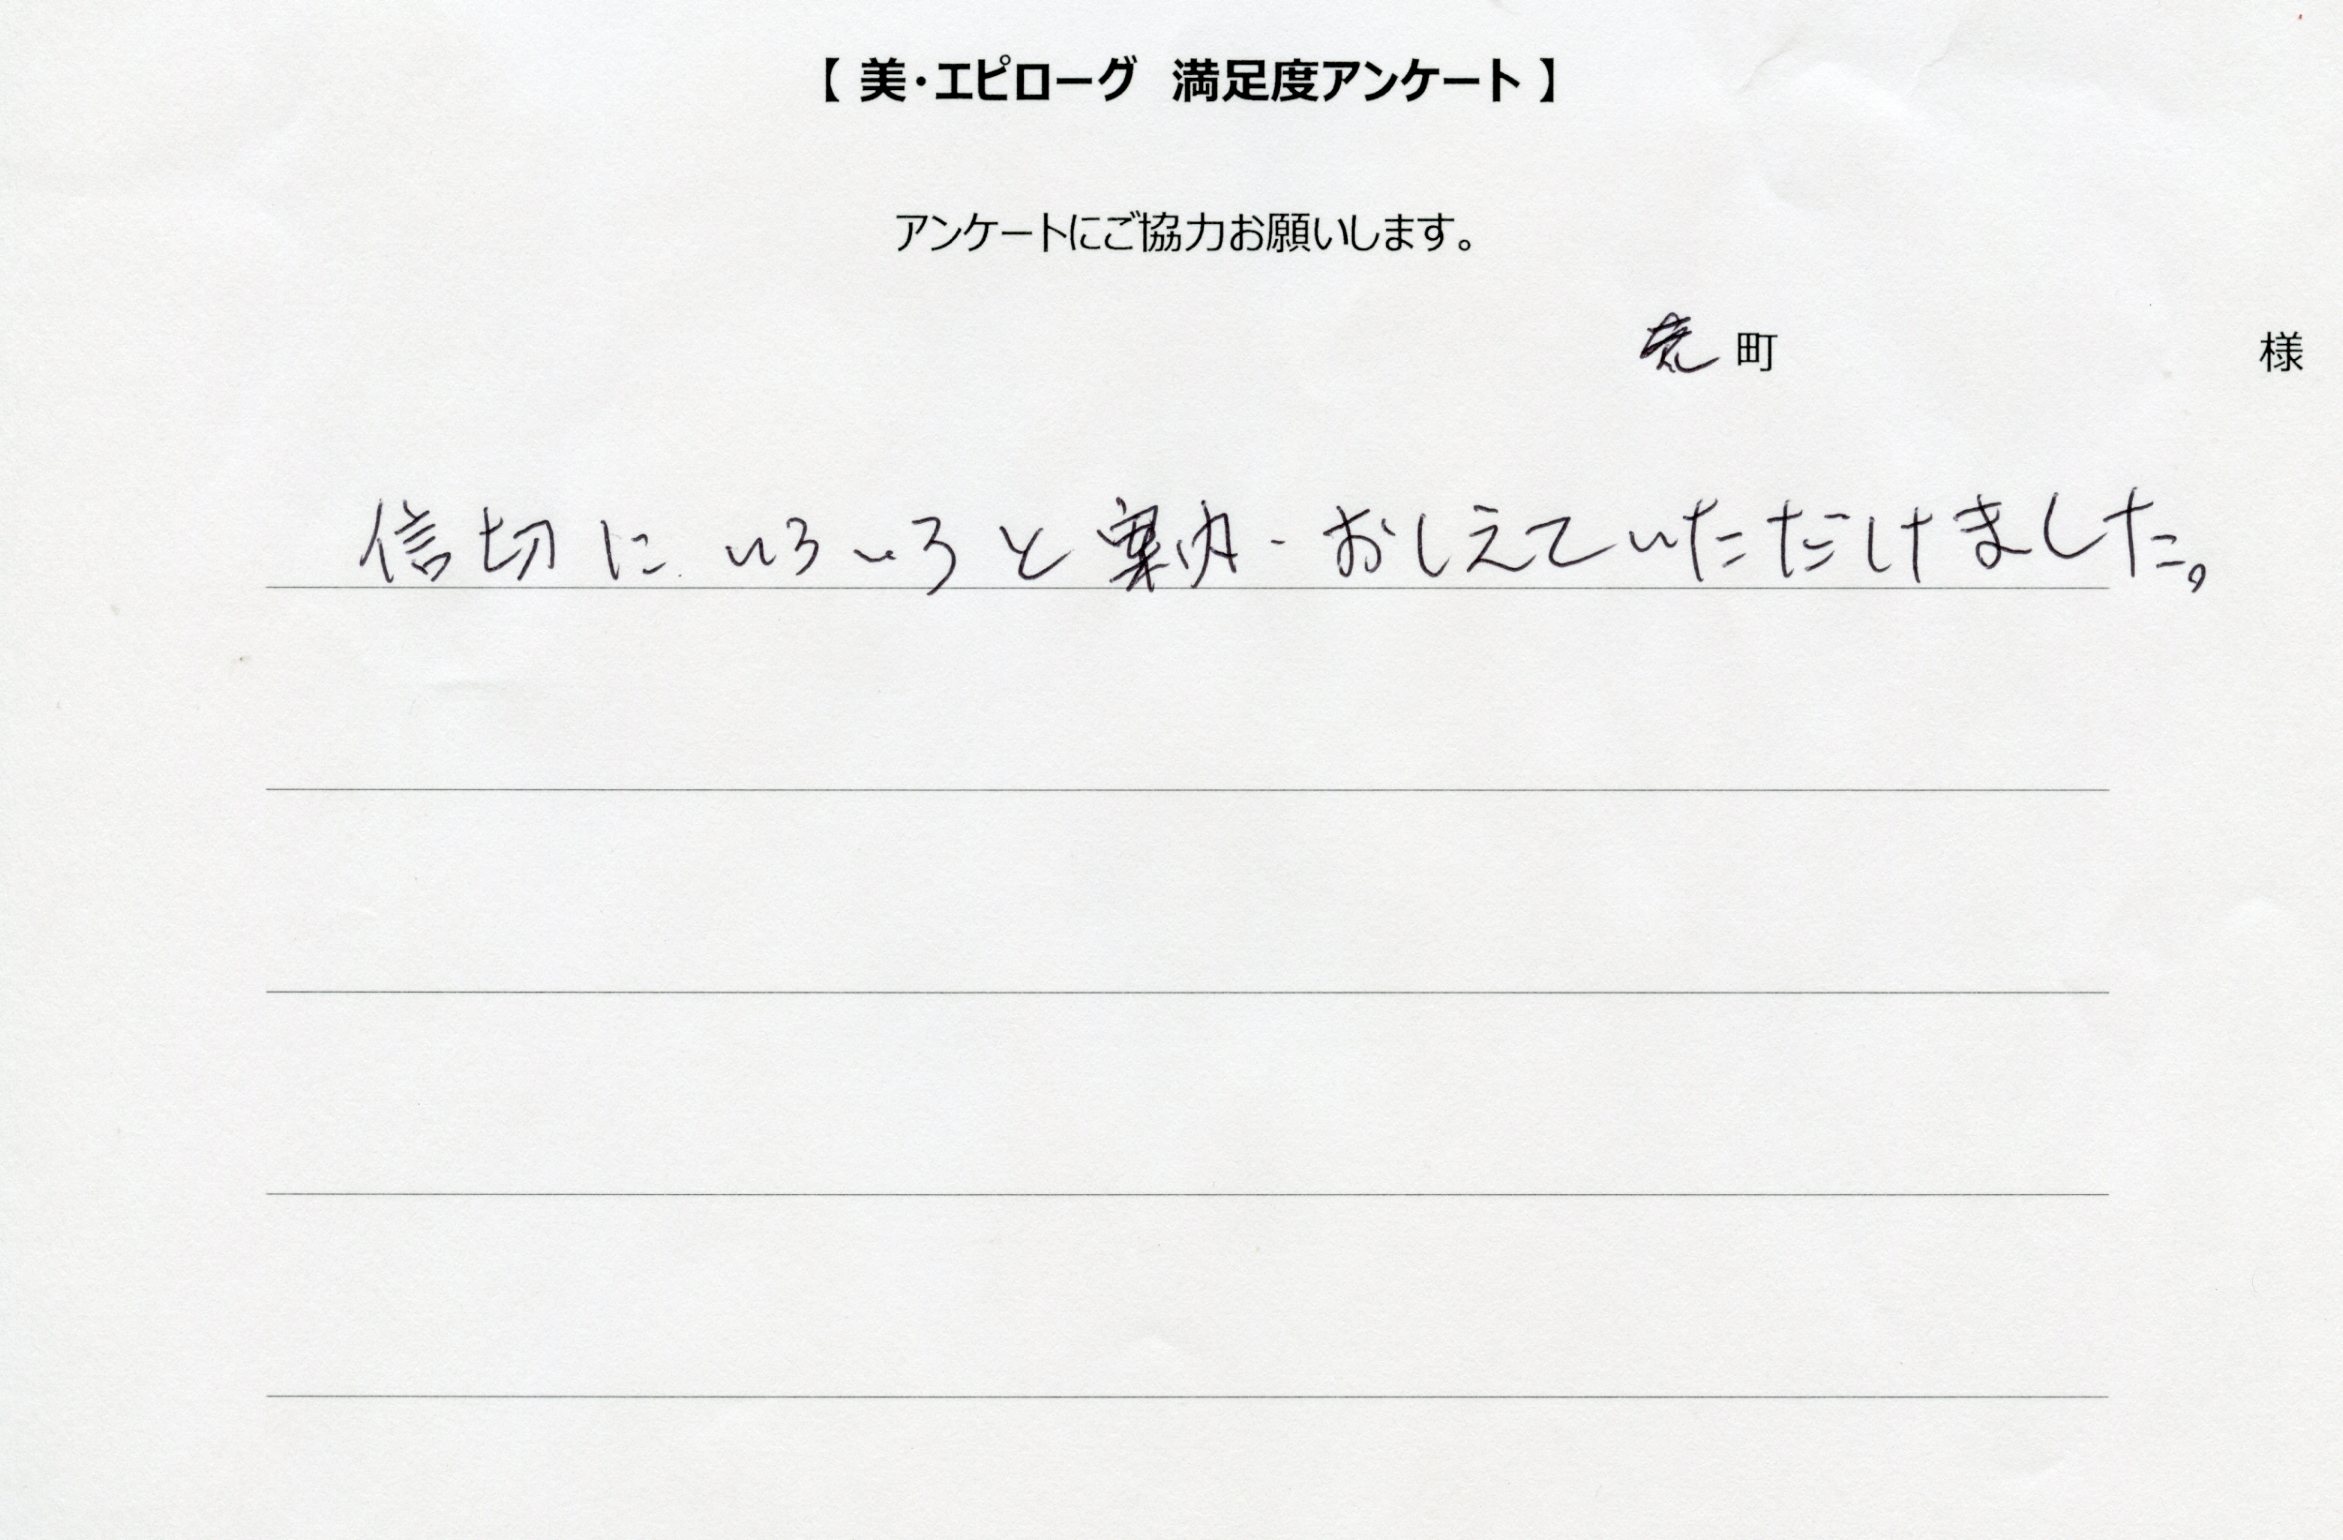 【 美・エピローグ　満足度アンケート 】
アンケートにご協力お願いします。
町　様
信切に いろいろと案内・おしえていただけました。